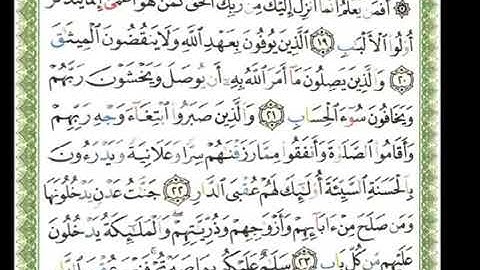 ۞ أَفَمَن يَعْلَمُ أَنَّمَآ أُنزِلَ إِلَيْكَ مِن رَّبِّكَ ٱلْحَقُّ كَمَنْ هُوَ أَعْمَىٰٓ إِنَّمَا يَتَذَكَّرُ
أُو۟لُوا۟ ٱلْأَلْبَٰبِ ١٩ ٱلَّذِينَ يُوفُونَ بِعَهْدِ ٱللَّهِ وَلَا يَنقُضُونَ ٱلْمِيثَٰقَ
٢٠ وَٱلَّذِينَ يَصِلُونَ مَآ أَمَرَ ٱللَّهُ بِهِۦٓ أَن يُوصَلَ وَيَخْشَوْنَ رَبَّهُمْ
وَيَخَافُونَ سُوٓءَ ٱلْحِسَابِ ٢١ وَٱلَّذِينَ صَبَرُوا۟ ٱبْتِغَآءَ وَجْهِ رَبِّهِمْ
وَأَقَامُوا۟ ٱلصَّلَوٰةَ وَأَنفَقُوا۟ مِمَّا رَزَقْنَٰهُمْ سِرًّا وَعَلَانِيَةً وَيَدْرَءُونَ
بِٱلْحَسَنَةِ ٱلسَّيِّئَةَ أُو۟لَٰٓئِكَ لَهُمْ عُقْبَى ٱلدَّارِ ٢٢ جَنَّٰتُ عَدْنٍ يَدْخُلُونَهَا
وَمَن صَلَحَ مِنْ ءَابَآئِهِمْ وَأَزْوَٰجِهِمْ وَذُرِّيَّٰتِهِمْ وَٱلْمَلَٰٓئِكَةُ يَدْخُلُونَ
عَلَيْهِم مِّن كُلِّ بَابٍ ٢٣ سَلَٰمٌ عَلَيْكُم بِمَا صَبَرْتُمْ فَنِعْمَ عُقْبَى ٱلدَّارِ